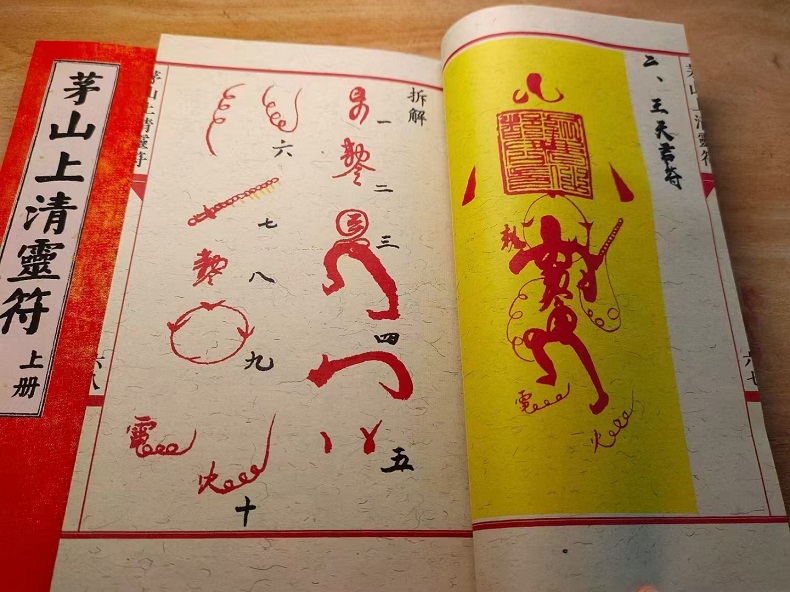 茅山上清靈符
上册
茅山上清靈符
六七
二、王天君符
電
火
拆解
一
二
三
四
五
六
七
八
九
電
火
十
茅山上清靈符
六八